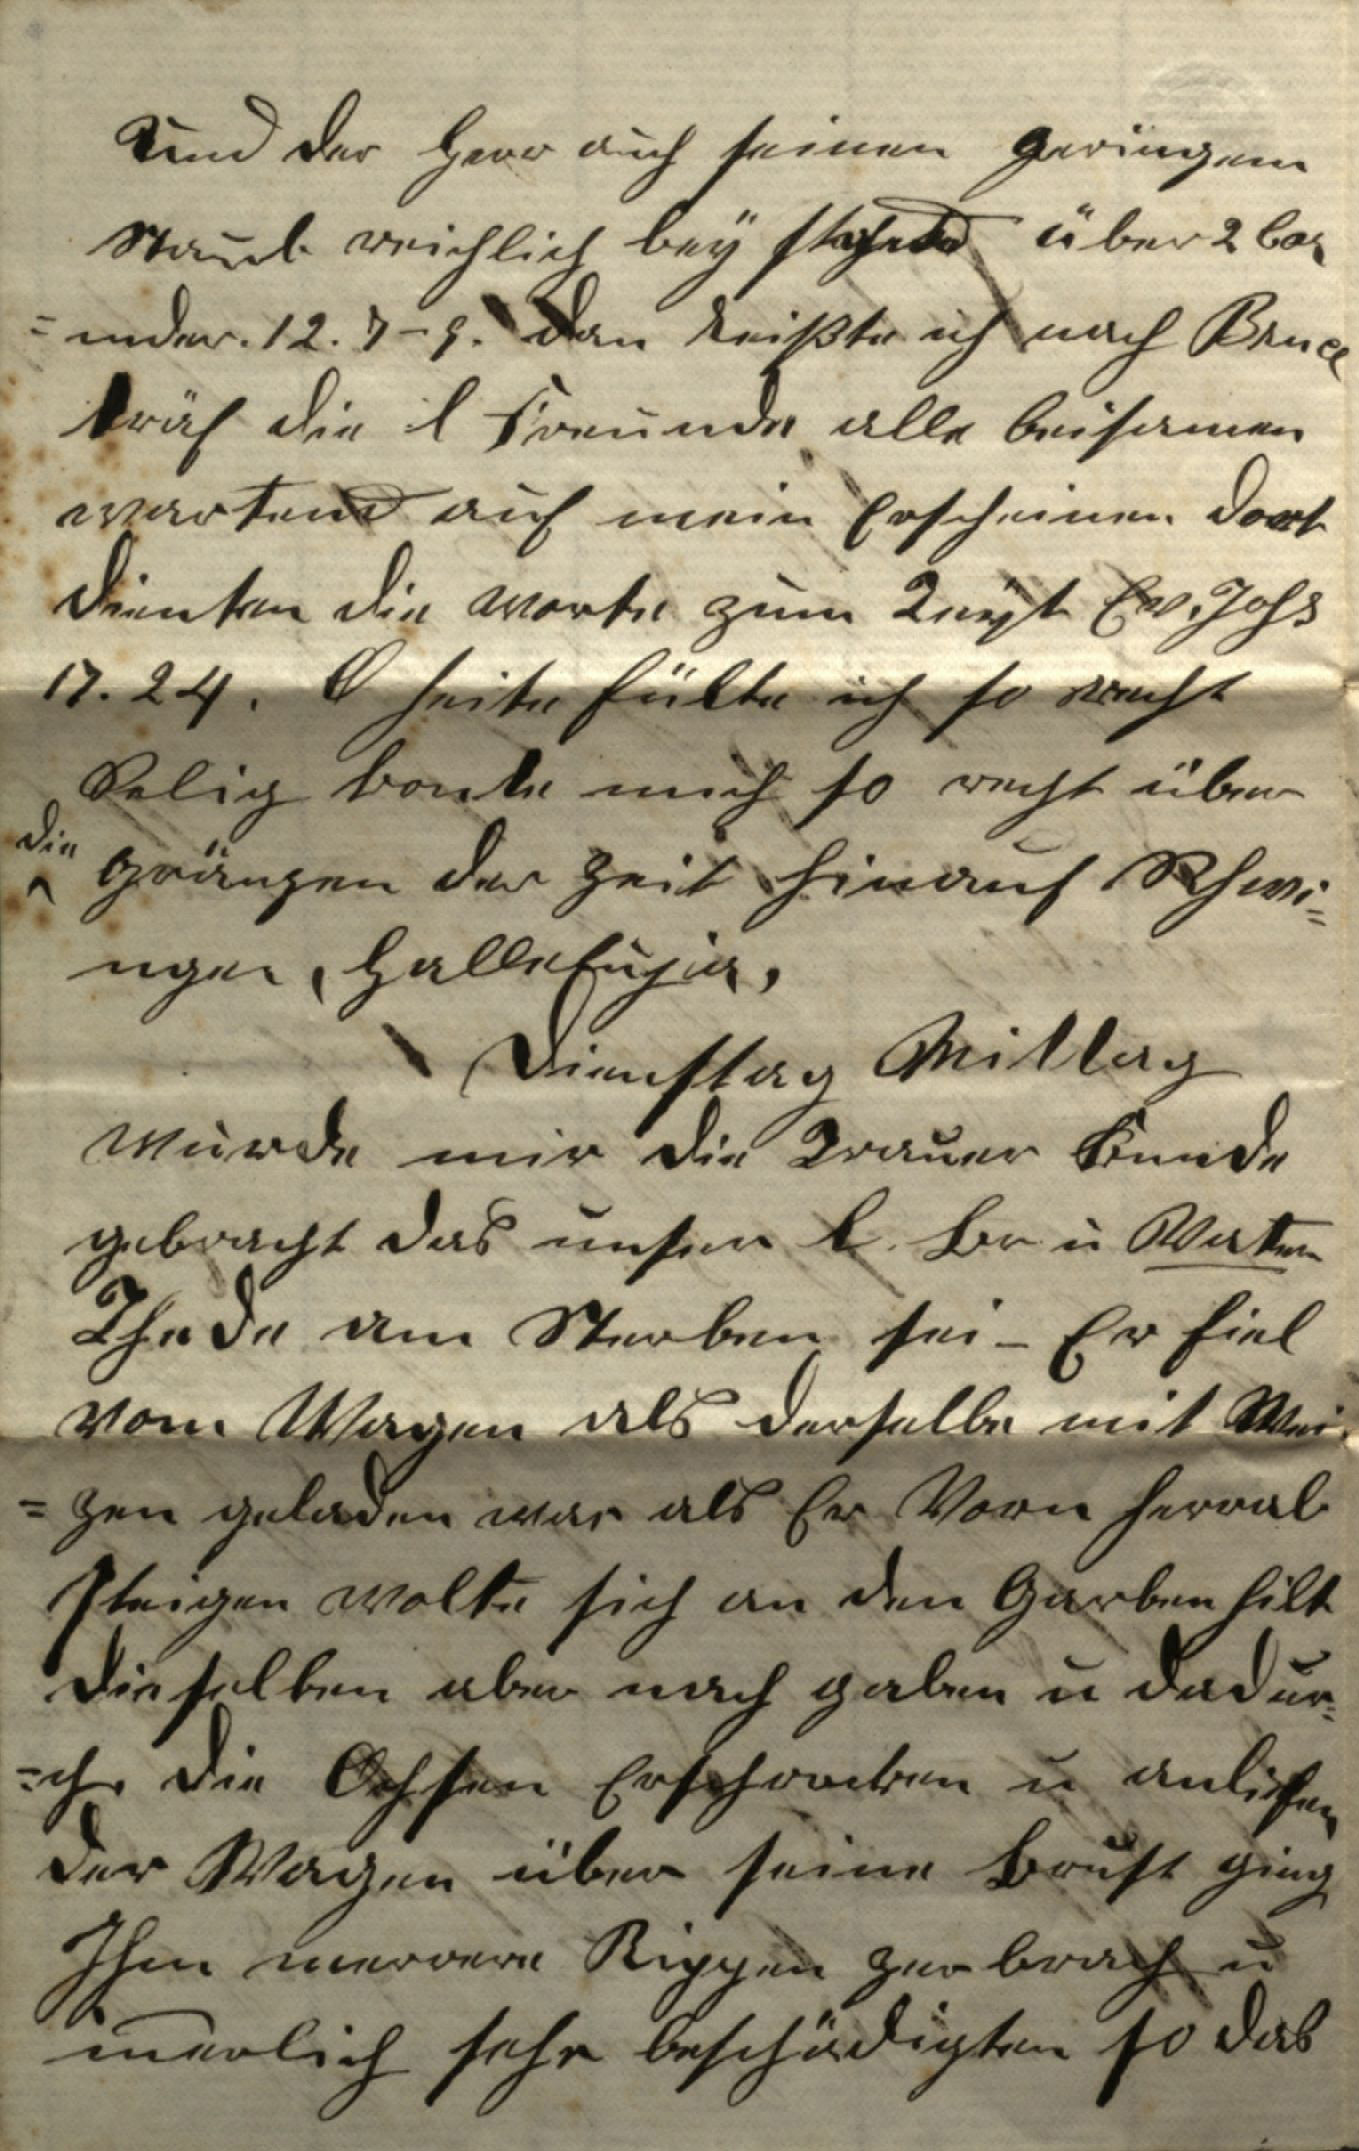 Und der Herr auch seinen geringem
Staub reichlich bey stand über 2 Cor
=inder. 12. 7-9. dan Reißte ich nach Bruce
träf die l Freunde alle beisamen
wartend auf mein Erscheinen dort
dienten die Worte zum Text Ev. Johs
17. 24. O heite fülte ich so recht
Selig konte mich so recht über
die gränzen der Zeit hinauf Schwi=
ngen, Hallelujia,
Dienstag Mittag
wurde mir die Trauer Kunde
gebracht das unser l. Br u Vater
Thede am Sterben sei - Er fiel
vom Wagen als derselbe mit Wei
=zen geladen war als Er Vorn herrab
steigen wolte sich an den Garben hilt
dieselben aber nach gaben u dadur=
=ch die Ochsen Erschrocken u anlifen
der Wagen über seine Brust ging
Ihm merrere Rippen zerbrach u
inerlich sehr beschädigten so das